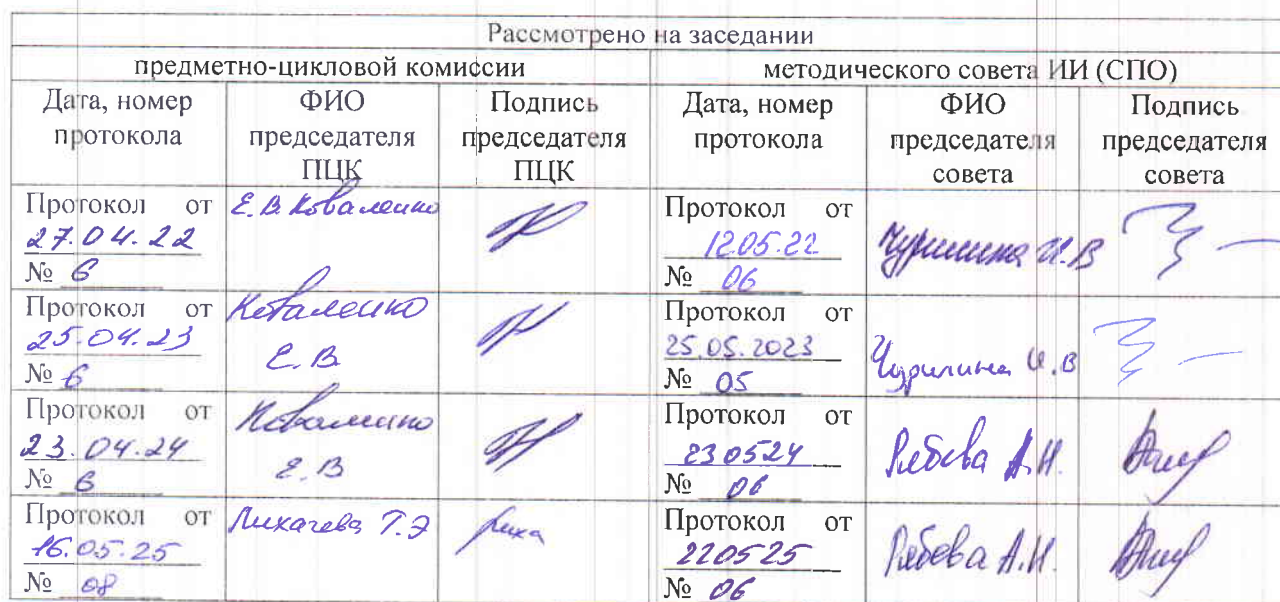 Рассмотрено на заседании
предметно-цикловой комиссии
методического совета ИИ (СПО)
Дата, номер протокола
ФИО председателя ПЦК
Подпись председателя ПЦК
Дата, номер протокола
ФИО председателя совета
Подпись председателя совета
Протокол от
27.04.22
№ 6
Е.В. Коваленко
Протокол от
12.05.22
№ 06
Чурилина И.В
Протокол от
25.04.23
№ 6
Коваленко
Е.В.
Протокол от
25.05.2023
№ 05
Чурилина И.В
Протокол от
23.04.24
№ 6
Коваленко
Е.В
Протокол от
230524
№ 06
Рябова А.Н.
Протокол от
16.05.25
№ 08
Лихачева Т.Э
Протокол от
220525
№ 06
Рябова А.Н.